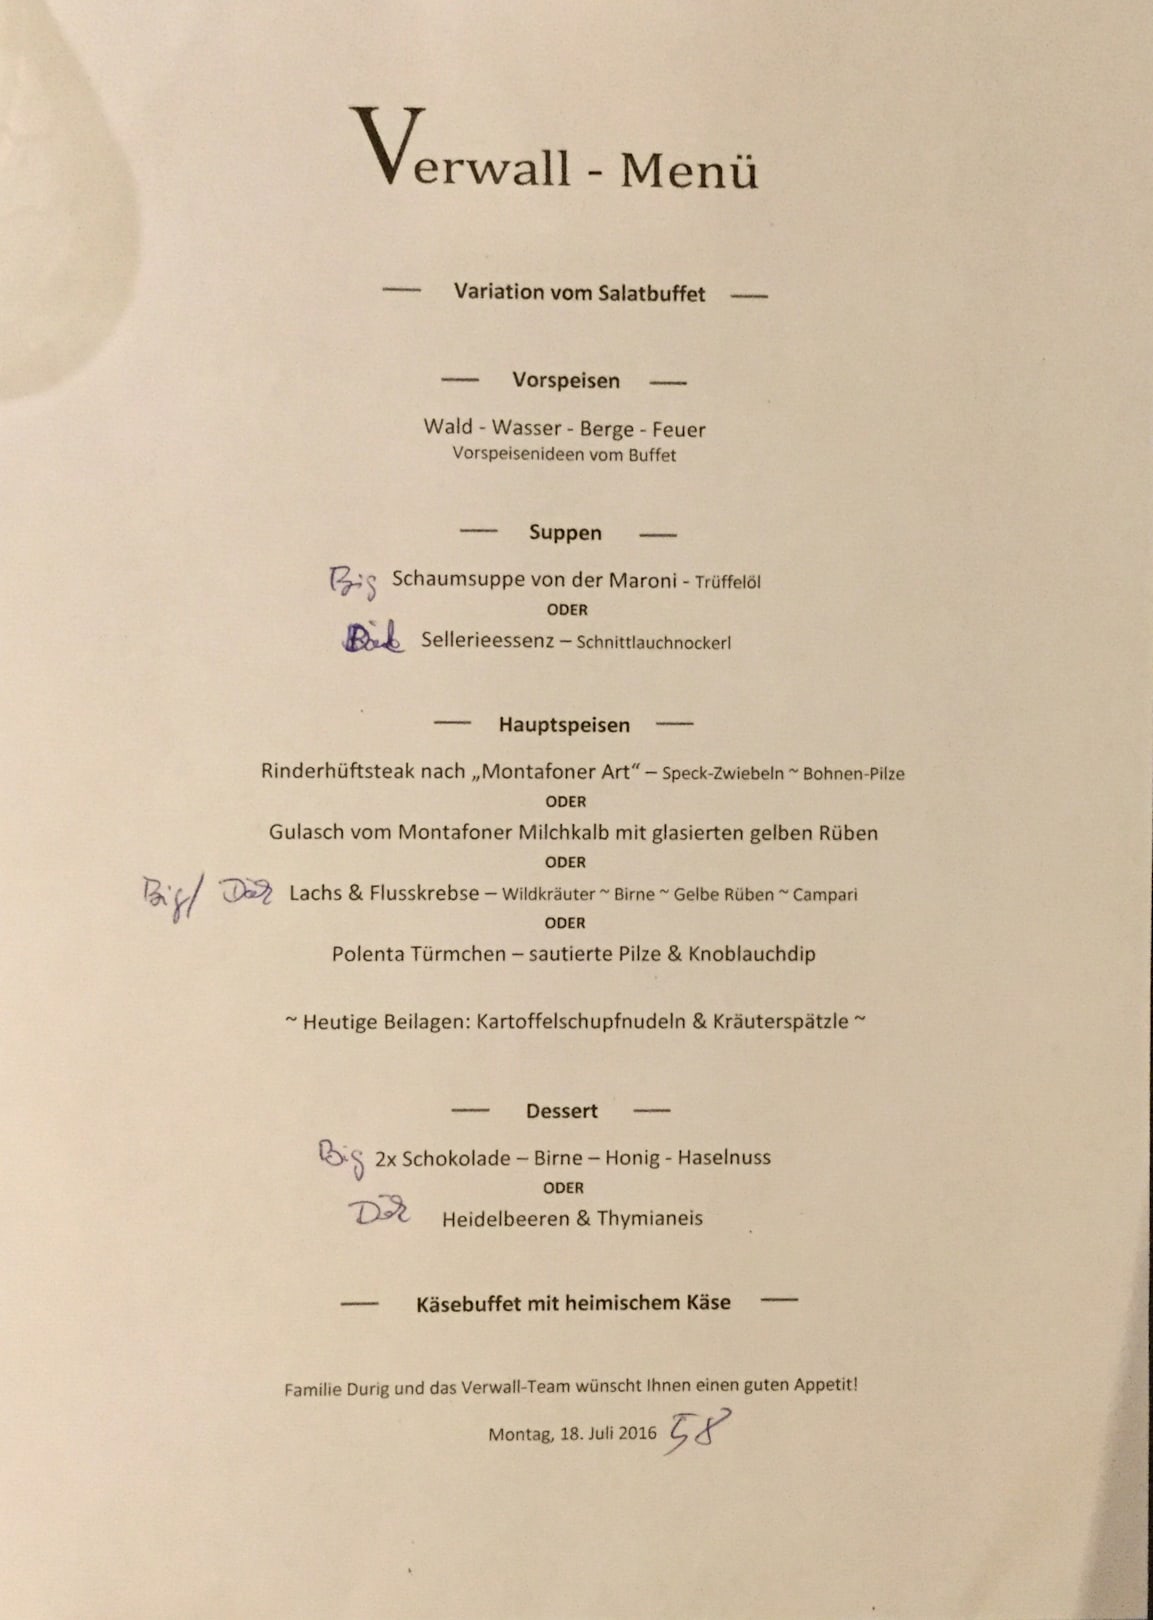 Verwall - Menü
Variation vom Salatbuffet
Vorspeisen
Wald - Wasser - Berge - Feuer
Vorspeisenideen vom Buffet
Suppen
Big Schaumsuppe von der Maroni - Trüffelöl
ODER
Sellerieessenz – Schnittlauchnockerl
Hauptspeisen
Rinderhüftsteak nach „Montafoner Art“ – Speck-Zwiebeln ~ Bohnen-Pilze
ODER
Gulasch vom Montafoner Milchkalb mit glasierten gelben Rüben
ODER
Big/ Lachs & Flusskrebse – Wildkräuter ~ Birne ~ Gelbe Rüben ~ Campari
ODER
Polenta Türmchen – sautierte Pilze & Knoblauchdip
~ Heutige Beilagen: Kartoffelschupfnudeln & Kräuterspätzle ~
Dessert
Big 2x Schokolade – Birne – Honig - Haselnuss
ODER
Heidelbeeren & Thymianeis
Käsebuffet mit heimischem Käse
Familie Durig und das Verwall-Team wünscht Ihnen einen guten Appetit!
Montag, 18. Juli 2016 58